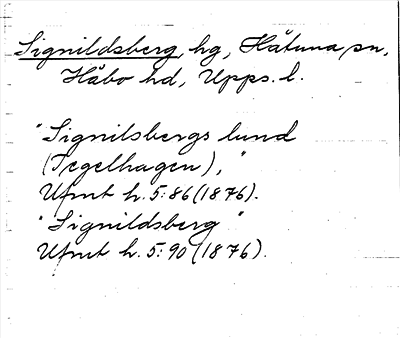 Signildsberg, hg, Håtuna sn,
Håbo hd, Upps. l.
"Signilsbergs lund
(Tegelhagen),"
Ufmt h. 5:86 (1876).
"Signildsberg"
Ufmt h. 5:90 (1876).